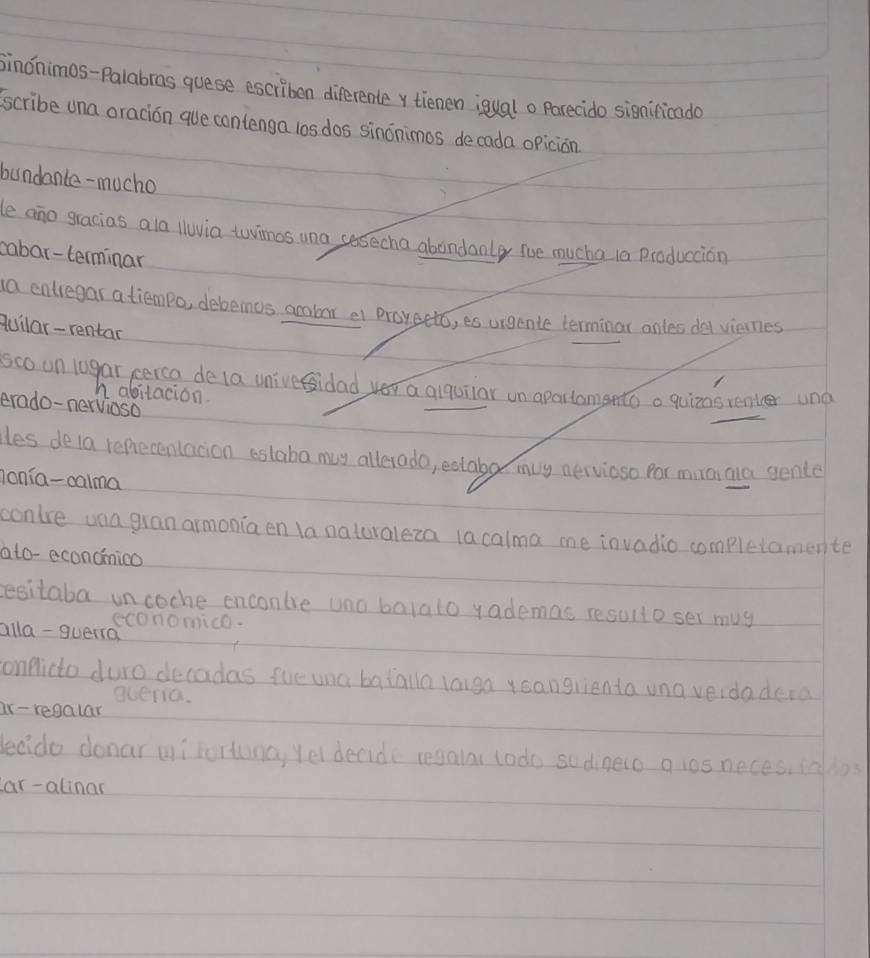 Sinónimos-Palabras quese escriben diferente y tienen igual o Parecido significado
Escribe una oración que contenga los dos sinónimos de cada opición.
bundante-mucho
te año gracias ala lluvia tuvimos una cosecha abundante, fue mucha la Producción
cabar-terminar
ra entregar a tiempo, debemos acabar el Proyecto, es urgente terminar antes del viernes
quilar-rentar
sco un lugar cerca de la universidad voy a alquilar un apartamento o quizás rentar una
habitación.
erado-nervioso
tes de la reprecentacion estaba muy alterado, estaba muy nervioso Por mirar ala gente
monía-calma
contre una gran armonia en la naturaleza la calma me invadio completamente
ato-económico
cesitaba un coche encontre uno barato y ademas resulto ser muy
economico.
alla-guerra
conflicto duro decadas fue una batalla larga y sangrienta una verdadera
guerra.
ar-regalar
decido donar mi fortuna, y el decide regalar todo su dinero a los necesitados
tar-atinar